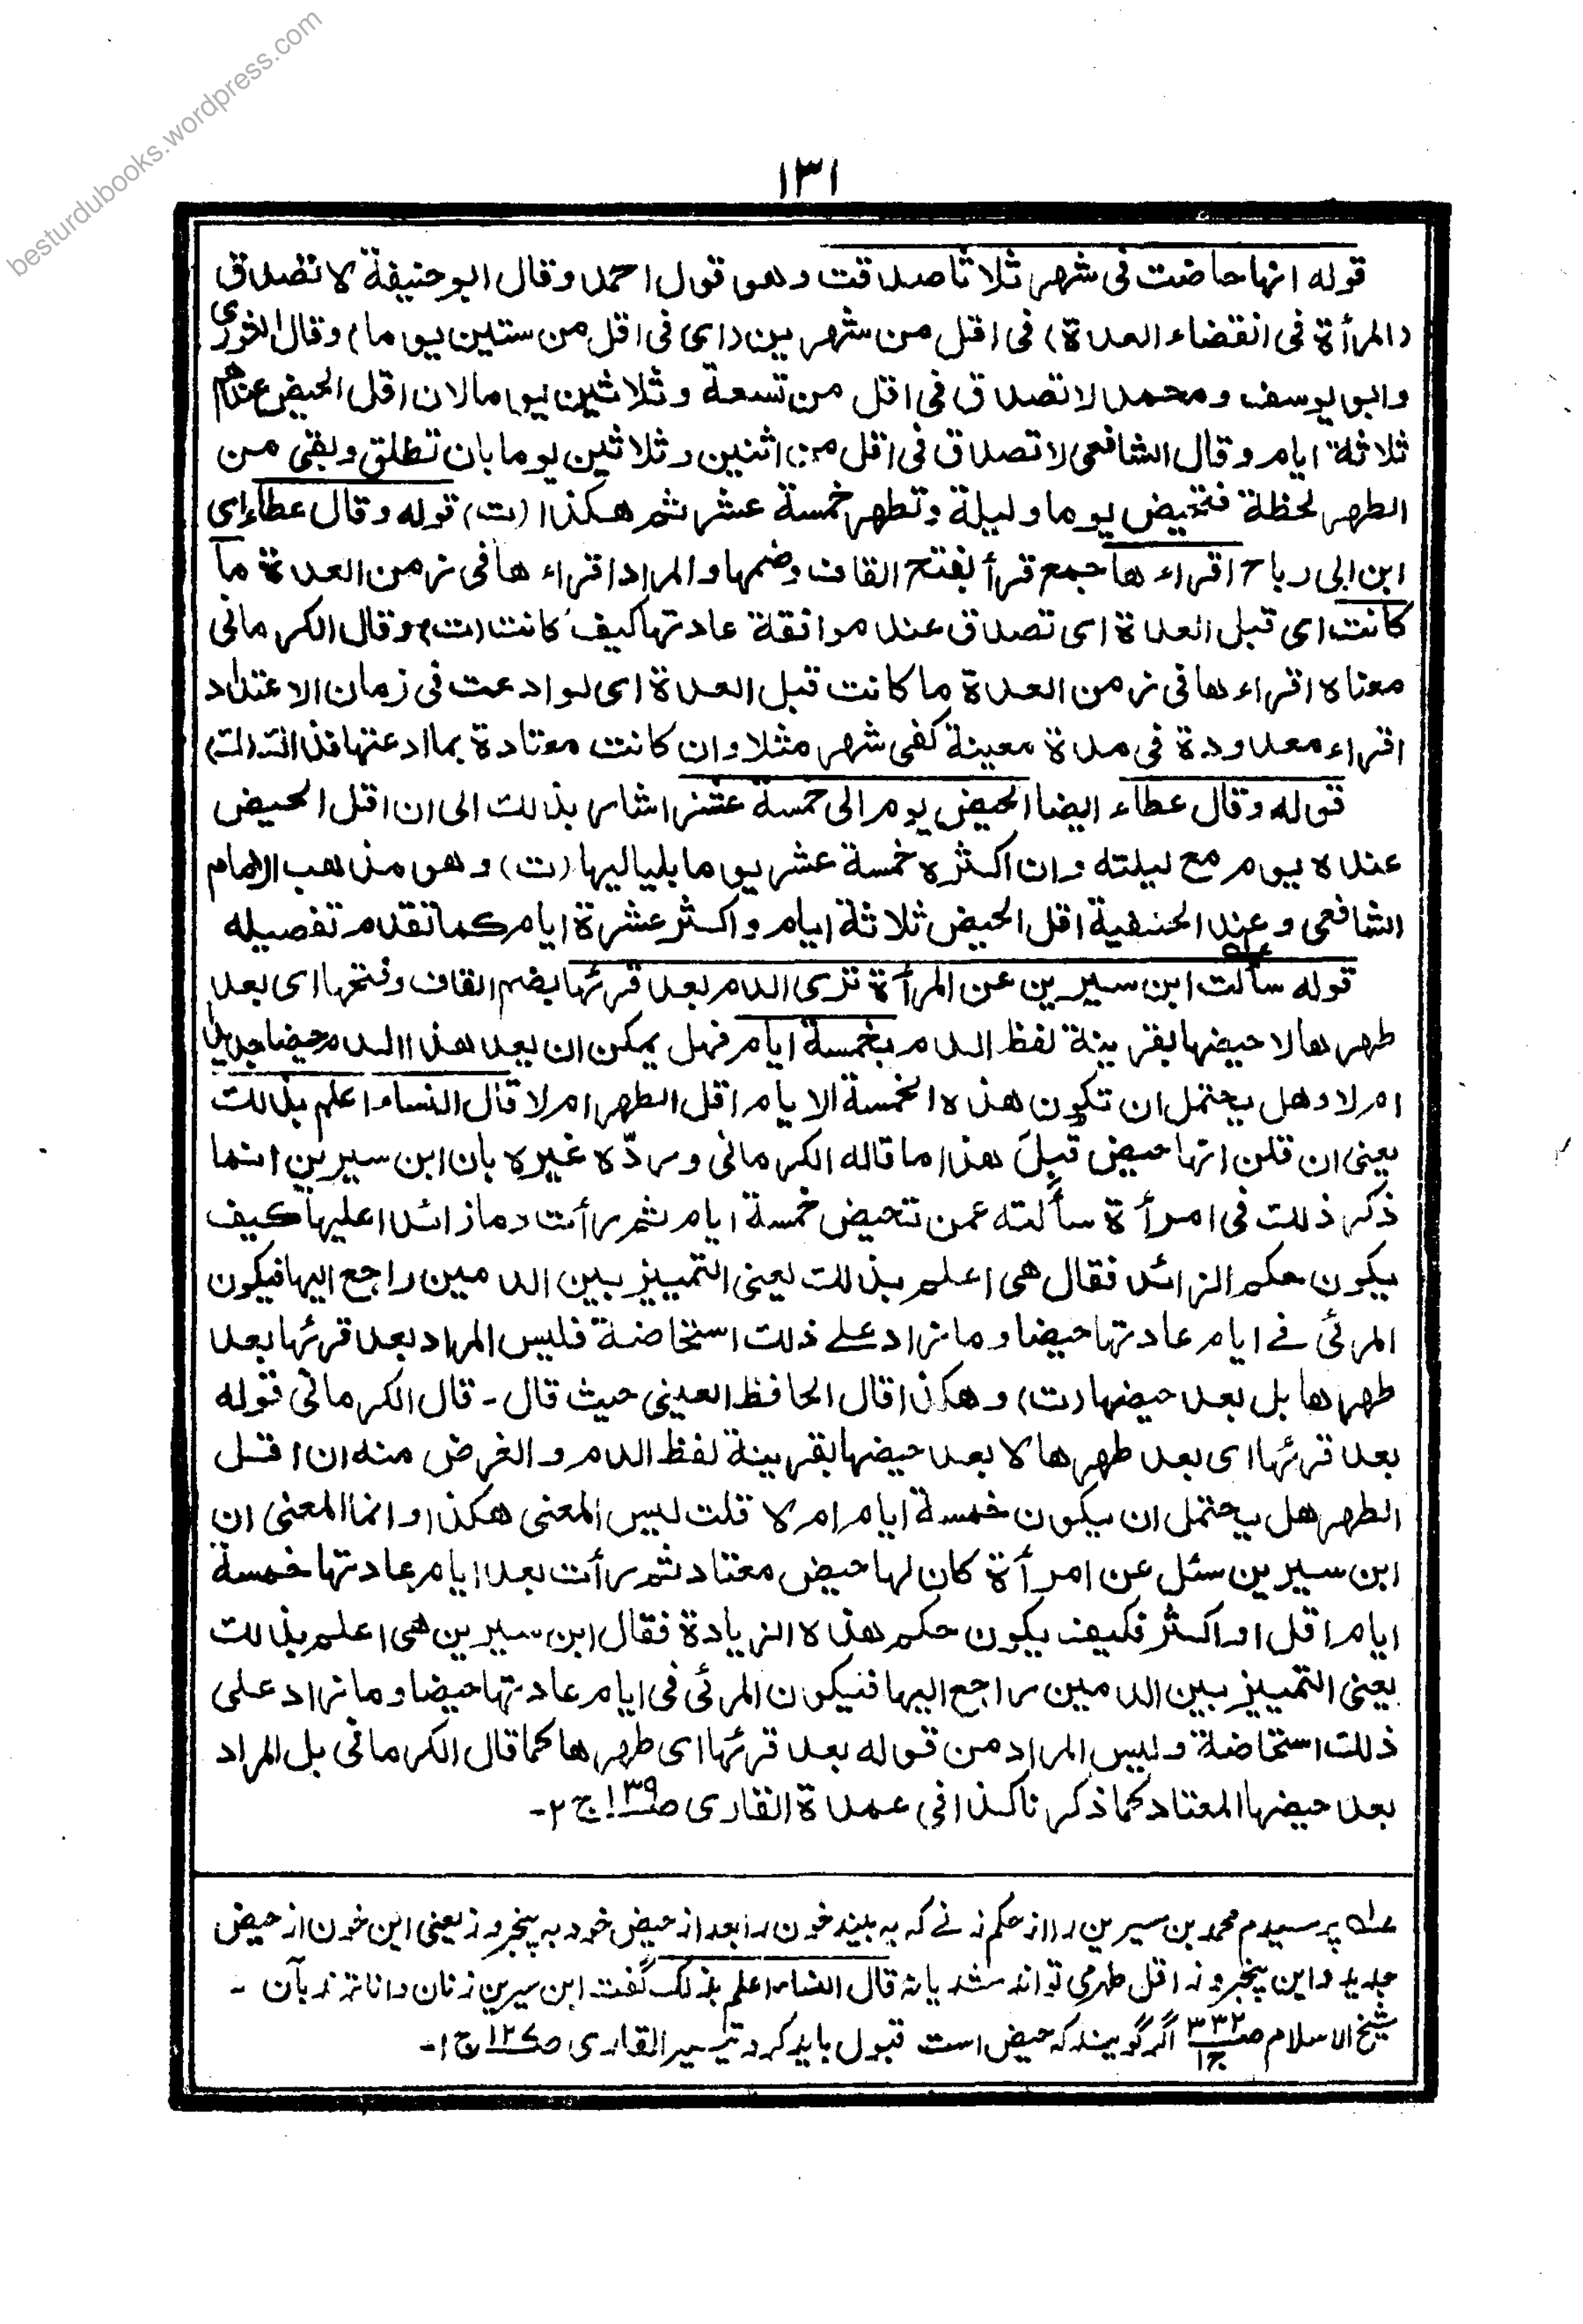 besturdubooks.wordpress.com
١٣١
قوله انها حاضت فى شهر ثلاثا صدقت وهو قول احمد وقال ابو حنيفة لا تصدق
(المرأة فى انقضاء العدة) فى اقل من شهرين (اى فى اقل من ستين يوما) وقال الثورى
وابو يوسف ومحمد لا تصدق فى اقل من تسعة وثلاثين يوما لان اقل الحيض عندهم
ثلاثة ايام وقال الشافعى لا تصدق فى اقل من اثنين وثلاثين يوما بان تطلق وبقى من
الطهر لحظة فتحيض يوما وليلة وتطهر خمسة عشر ثم هكذا (ت) قوله وقال عطاء اى
ابن ابى رباح اقراء ها جمع قرأ بفتح القاف وضمها والمراد اقراء ها فى زمن العدة ما
كانت اى قبل العدة اى تصدق عند موافقة عادتها كيف كانت (ت) وقال الكرمانى
معناه اقراء ها فى زمن العدة ما كانت قبل العدة اى لو ادعت فى زمان الاعتداد
اقراء معدودة فى مدة معينة كفى شهر مثلا وان كانت معتادة بما ادعتها فذالك (ت)
قوله وقال عطاء ايضا الحيض يوم الى خمسة عشر اشار بذلك الى ان اقل الحيض
عنده يوم مع ليلته وان اكثره خمسة عشر يوما بلياليها (ت) وهو مذهب الامام
الشافعى وعند الحنفية اقل الحيض ثلاثة ايام واكثر عشرة ايام كما تقدم تفصيله
قوله سألت ابن سيرين عن المرأة ترى الدم بعد قرئها بضم القاف وفتحها اى بعد
طهرها لا حيضها بقرينة لفظ الدم بخمسة ايام فهل يمكن ان يعد هذا الدم حيضا جديدا
ام لا وهل يحتمل ان تكون هذه الخمسة الايام اقل الطهر ام لا قال النساء اعلم بذلك
يعنى ان قلن انها حيض قبل هذا ما قاله الكرمانى وردّه غيره بان ابن سيرين انما
ذكر ذلك فى امرأة سألته عمن تحيض خمسة ايام ثم رأت دما زائدا عليها كيف
يكون حكم الزائد فقال هى اعلم بذلك يعنى التمييز بين الدمين راجع اليها فيكون
المرئى فى ايام عادتها حيضا وما زاد على ذلك استحاضة فليس المراد بعد قرئها بعد
طهرها بل بعد حيضها (ت) وهكذا قال الحافظ العينى حيث قال - قال الكرمانى قوله
بعد قرئها اى بعد طهرها لا بعد حيضها بقرينة لفظ الدم والغرض منه ان اقل
الطهر هل يحتمل ان يكون خمسة ايام ام لا قلت ليس المعنى هكذا وانما المعنى ان
ابن سيرين سئل عن امرأة كان لها حيض معتاد ثم رأت بعد ايام عادتها خمسة
ايام اقل او اكثر فكيف يكون حكم هذه الزيادة فقال ابن سيرين هى اعلم بذلك
يعنى التمييز بين الدمين راجع اليها فيكون المرئى فى ايام عادتها حيضا وما زاد على
ذلك استحاضة وليس المراد من قوله بعد قرئها اى طهرها كما قال الكرمانى بل المراد
بعد حيضها المعتاد كما ذكرنا كذا فى عمدة القارى ص١٣٩ ج ٢-
عله پرسیدم محمد بن سیرین را از حکم زنے کہ بہ بیند خون را بعد از حیض خود بہ پنجروز یعنی این خون از حیض
جدید و این پنجروز اقل طہر می تواند شد یا نہ قال النساء اعلم بذلک گفت ابن سیرین زنان داناترند بآن -
شیخ الاسلام ص ۳۳۲ ج۱ اگر گویند کہ حیض است قبول باید کرد تیسیر القاری ص۱۲۷ ج۱-